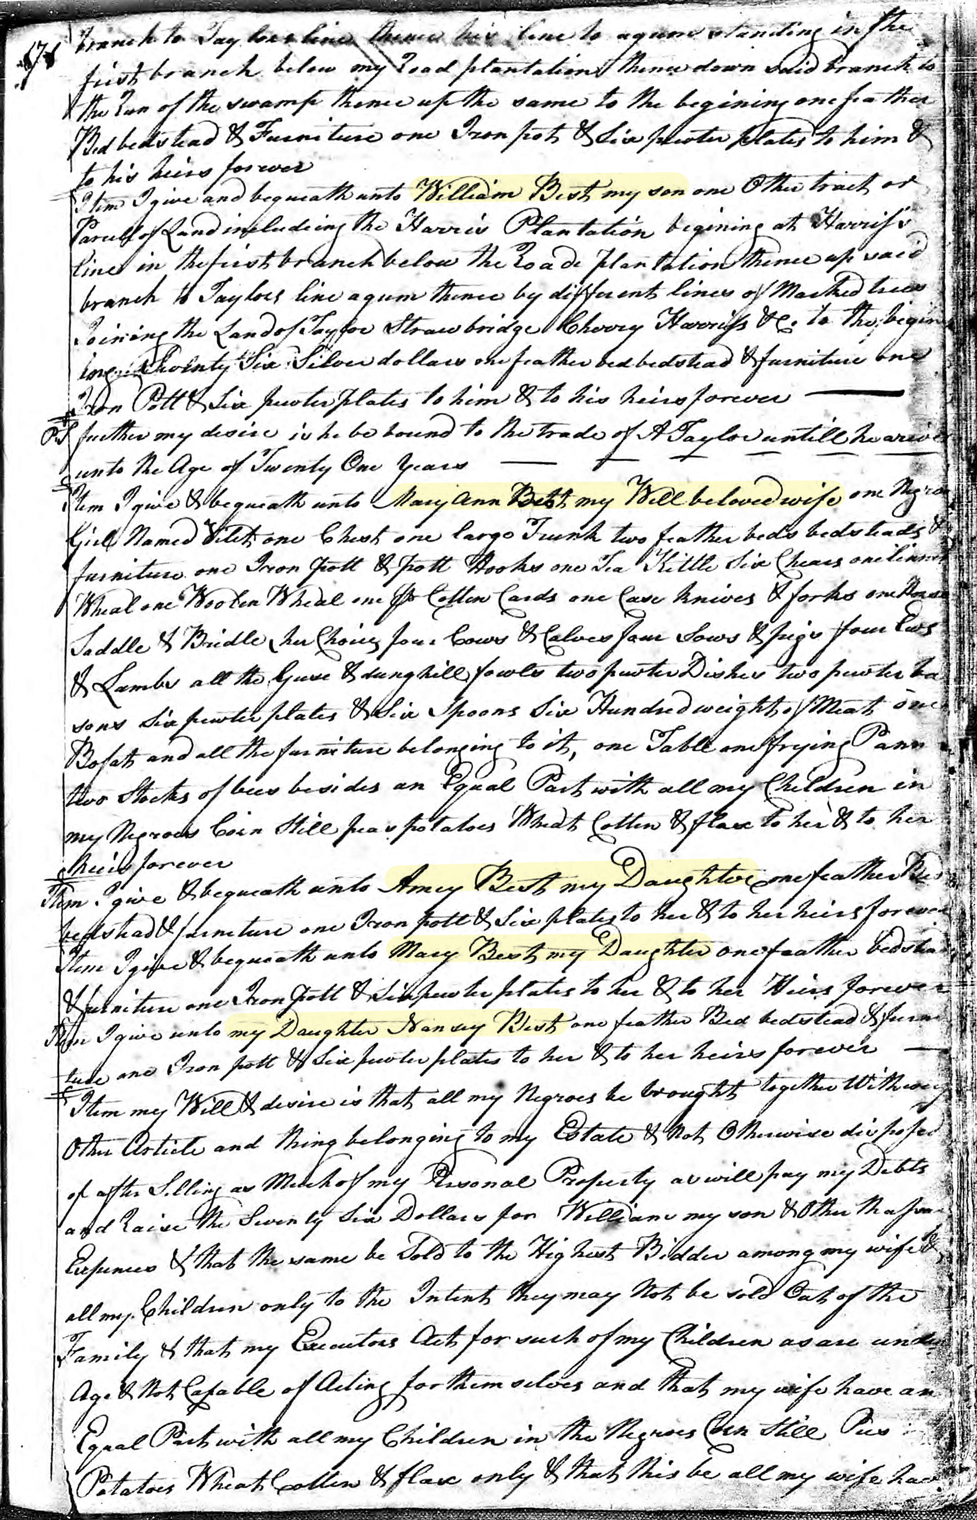 171
branch to Taylors line thence his line to a gum standing in the
first branch below my Road plantation thence down said branch to
the Run of the swamp thence up the same to the begining one feather
Bed bedstead & Furniture one Iron pot & Six pewter plates to him &
to his heirs forever
Item I give and bequeath unto William Best my son one Other tract or
Parcel of Land includeing the Harris Plantation begining at Harriss
line in the first branch below the Roade plantation thence up said
branch to Taylors line a gum thence by different lines of Marked trees
Joining the Land of Taylor Strawbridge Cherry Harriss &C to the begin
Seventy Six Silver dollars one feather bed bedstead & furniture one
Iron Pott & Six pewter plates to him & to his heirs forever
PS further my desire is he be bound to the trade of A Taylor untill he arive
unto the Age of Twenty One Years
Item I give & bequeath unto Mary Ann Best my Well beloved wife one Negro
Girl Named one Chest one large Trunk two feather beds bedsteads &
furniture one Iron pott & pott Hooks one Tea Kittle Six Chears one linnen
Wheal one Woolen Wheal one pr Cotten Cards one Case Knives & forks one Horse
Saddle & Bridle her Choice four Cows & Calves four Sows & pigs four Ews
& Lambs all the Guse & dunghill fowls two pewter Dishes two pewter ba
sons six pewter plates & Six Spoons Six Hundred weight of Meat one
Bofat and all the furniture belonging to it, one Table one frying Pann
two Stocks of bees besides an Equal Part with all my Children in
my Negroes Corn Still peas potatoes Wheat Cotten & flax to her & to her
heirs forever
Item I give & bequeath unto Amey Best my Daughter one feather Bed
bedstead & furniture one Iron pott & Six plates to her & to her heirs forever
Item I give & bequeath unto Mary Best my Daughter one feather bedstead
& furniture one Iron pott & Six pewter plates to her & to her Heirs forever
Item I give unto my Daughter Nancy Best one feather Bed bedstead & furni
ture one Iron pott & Six pewter plates to her & to her heirs forever
Item my Will & desire is that all my Negroes be brought together With every
Other Article and thing belonging to my Estate & Not Otherwise disposed
of after Selling as Much of my Personal Property as will pay my Debts
and Raise the Seventy Six Dollars for William my son & Other
Expences & that the same be Sold to the Highest Bidder among my wife &
all my Children only to the Intent they may Not be sold Out of the
Family & that my Executors Act for such of my Children as are under
Age & Not Capable of Acting for them selves and that my wife have an
Equal Part with all my Children in the Negroes Corn Still Pies
Potatoes Wheat Cotten & flax only & that this be all my wife have